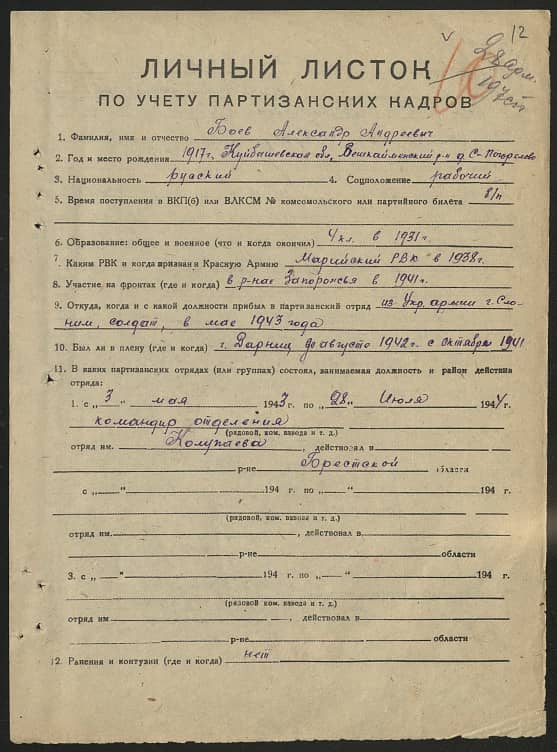 12
ЛИЧНЫЙ ЛИСТОК
ПО УЧЕТУ ПАРТИЗАНСКИХ КАДРОВ
1. Фамилия, имя и отчество Боев Александр Андреевич
2. Год и место рождения 1917 г, Куйбашевская обл, Вешкайменский р-н д. С-Погорелово
3. Национальность руский 4. Соцположение рабочий
5. Время поступления в ВКП(б) или ВЛКСМ № комсомольского или партийного билета б/п
6. Образование: общее и военное (что и когда окончил) 4 кл. в 1931 г.
7. Каким РВК и когда призван в Красную Армию Марийский РВК в 1938 г.
8. Участие на фронтах (где и когда) в р-нае Запорожья в 1941 г.
9. Откуда, когда и с какой должности прибыл в партизанский отряд из Укр. армии г. Сло-
ним, солдат, в мае 1943 года
10. Был ли в плену (где и когда) г. Дарниц до августа 1942 г. с октября 1941
11. В каких партизанских отрядах (или группах) состоял, занимаемая должность и район действия
отряда:
1. с „3“ мая 1943 г. по „28“ Июля 1944 г.
командир отделения
(рядовой, ком. взвода и т. д.)
отряд им. Колупаева, действовал в
р-не Брестской области
с „ “ 194 г. по „ “ 194 г.
(рядовой, ком. взвода и т. д.)
отряд им. , действовал в
р-не области
3. с „ “ 194 г. по „ “ 194 г.
(рядовой, ком. взвода и т. д.)
отряд им , действовал в
р-не области
12. Ранения и контузии (где и когда) нет